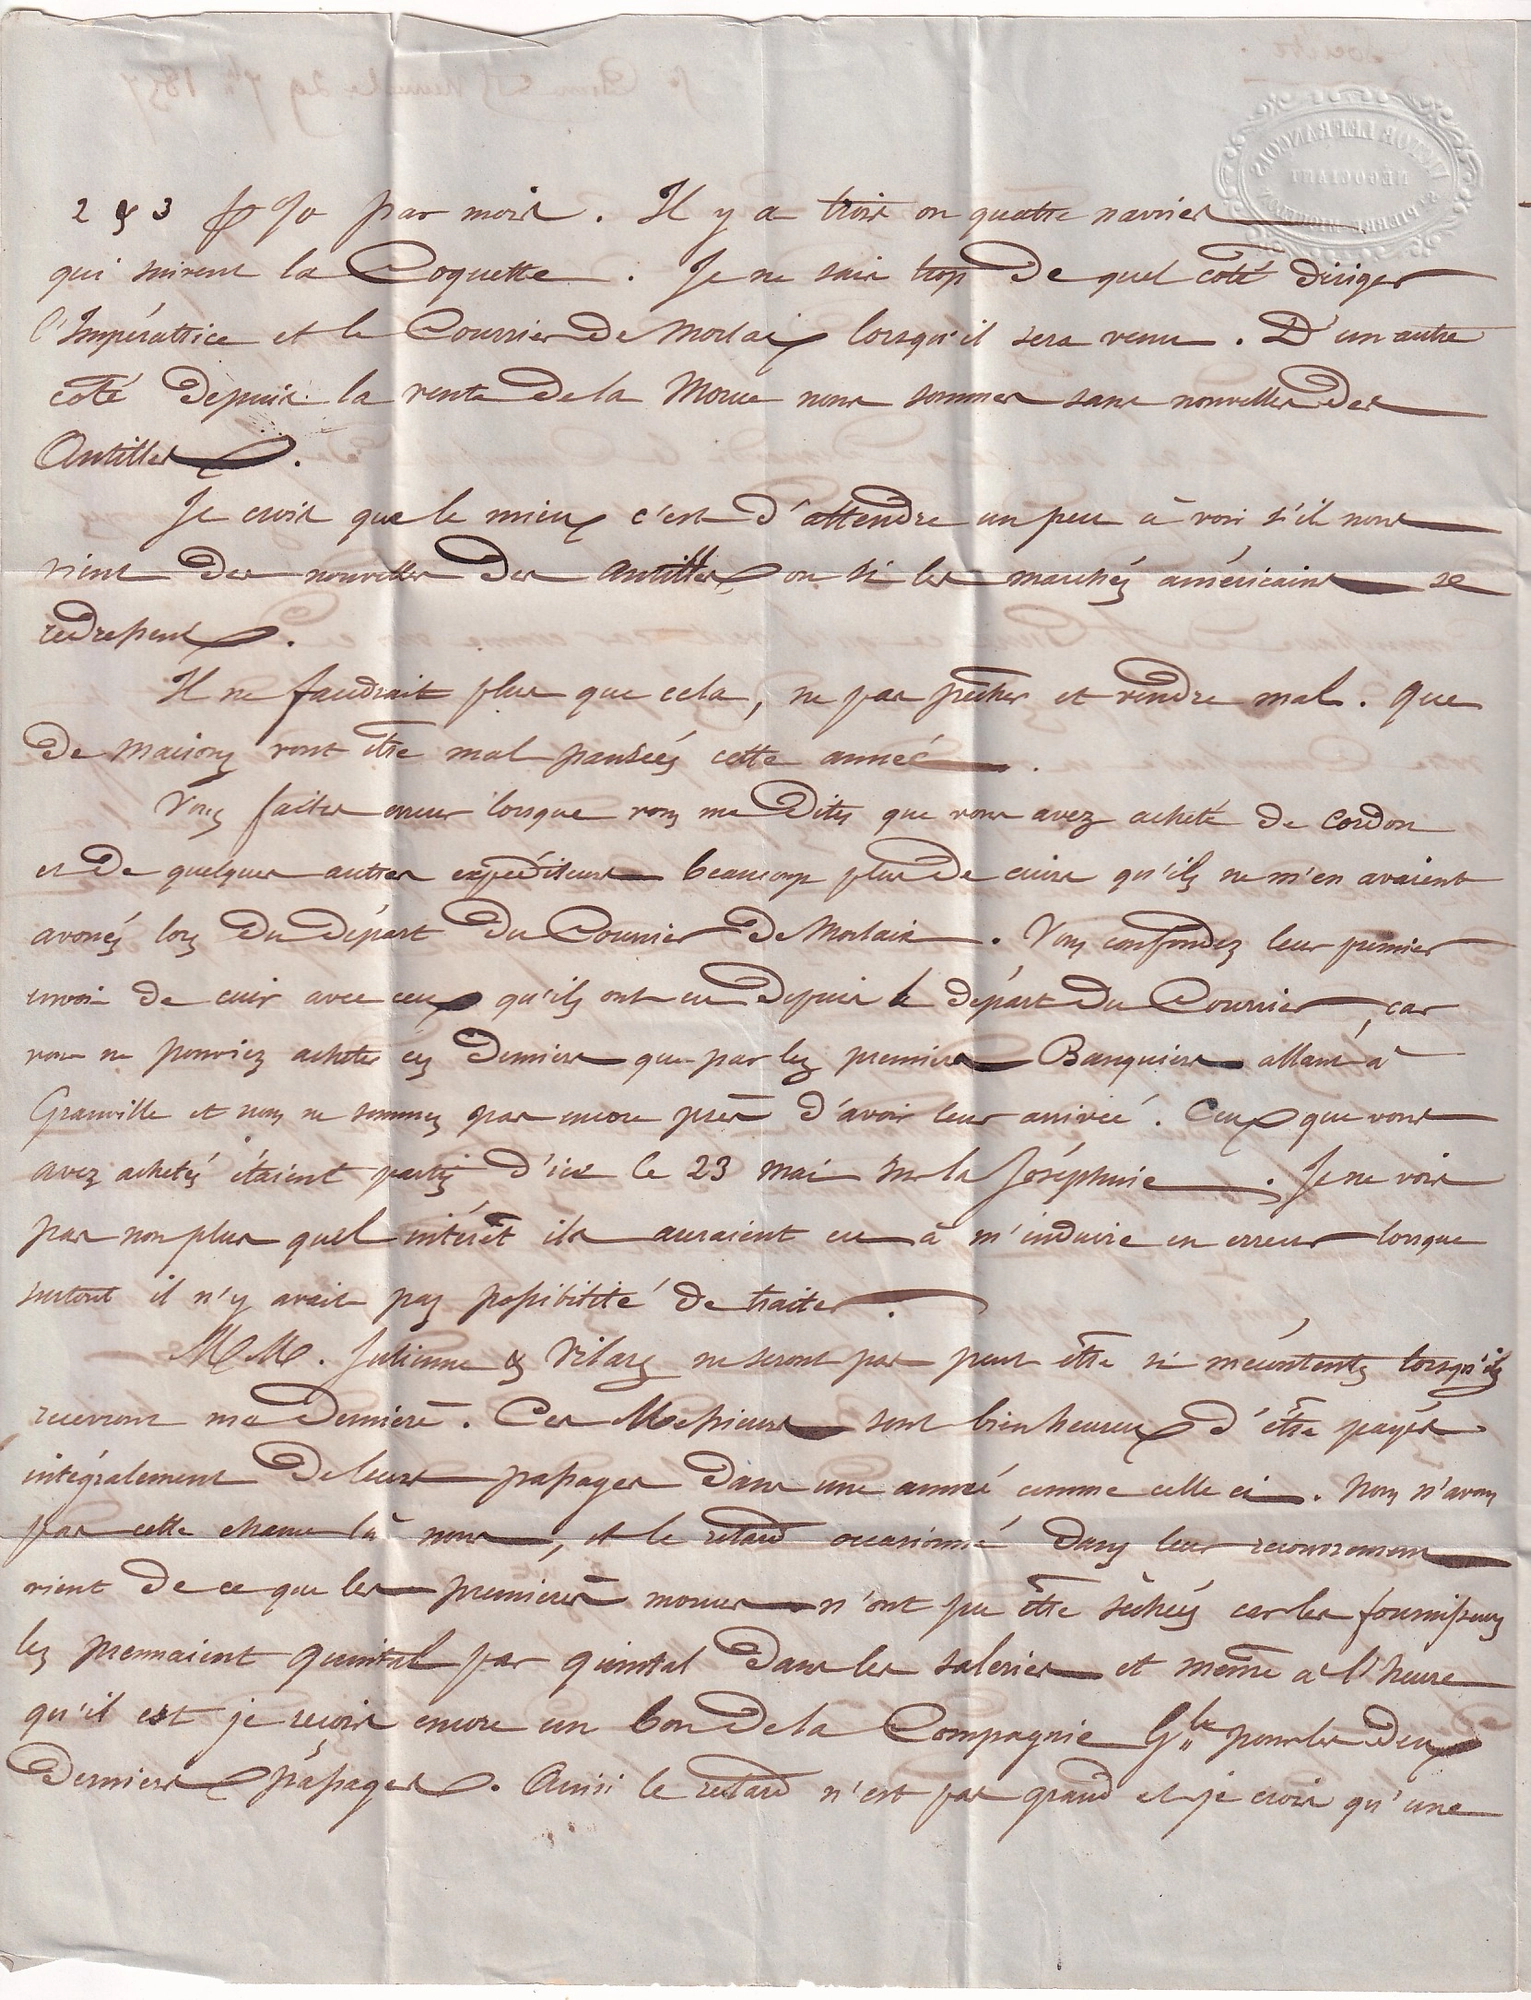 2 & 3 p % par mois. Il y a trois ou quatre navires
qui suivent la Coquette. Je ne sais trop de quel coté diriger
l'Impératrice et le Courrier de Morlaix lorsqu'il sera venu. D'un autre
coté depuis la vente de la Morue nous sommes sans nouvelles des
Antilles.
Je crois que le mieux c'est d'attendre un peu à voir s'il nous
vient des nouvelles des Antilles ou si les marchés américains se
redressent.
Il ne faudrait plus que cela, ne pas pêcher et vendre mal. Que
de maisons vont être mal pansées cette année.
Vous faites erreur lorsque vous me dites que vous avez acheté de Cordon
et de quelques autres expéditeurs beaucoup plus de cuirs qu'ils ne m'en avaient
avoués lors du départ du Courrier de Morlaix. Vous confondez leur premier
envoi de cuir avec ceux qu'ils ont eu depuis le départ du Courrier, car
vous ne pouviez acheter ces derniers que par les premiers Banquiers allant à
Granville et nous ne sommes pas encore près d'avoir leur arrivée. Ceux que vous
avez achetés étaient partis d'ici le 23 mai sur la Joséphine. Je ne vois
pas non plus quel intérêt ils auraient eu à m'induire en erreur lorsque
surtout il n'y avait pas possibilité de traiter.
MM. Julienne & Vilars ne seront pas peut être si mécontents lorsqu'ils
recevront ma dernière. Ces Messieurs sont bien heureux d'être payés
intégralement de leurs passages dans une année comme celle ci. Nous n'avons
pas cette chance là nous, et le retard occasionné dans leur recouvrement
vient de ce que les premières morues n'ont pu être séchées car les fournisseurs
les prennaient quintal par quintal dans les saleries et même à l'heure
qu'il est je reçois encore un bon de la Compagnie Gle pour les deux
derniers passages. Ainsi le retard n'est pas grand et je crois qu'une
VICTOR LEFRANÇOIS
NÉGOCIANT
ST PIERRE MIQUELON